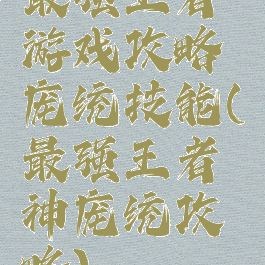 最强王者
游戏攻略
庞统技能(
最强王者
神庞统攻
略)